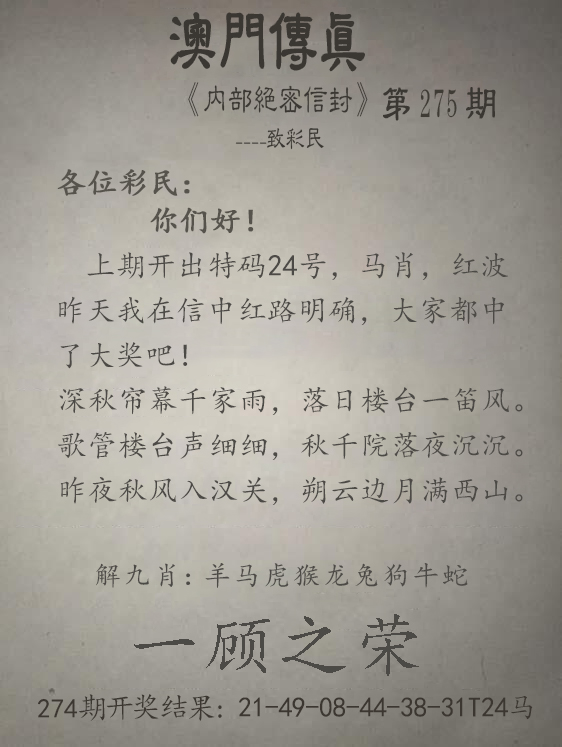 澳門傳眞
《内部絕密信封》第275期
----致彩民
各位彩民：
你们好！
上期开出特码24号，马肖，红波
昨天我在信中红路明确，大家都中
了大奖吧！
深秋帘幕千家雨，落日楼台一笛风。
歌管楼台声细细，秋千院落夜沉沉。
昨夜秋风入汉关，朔云边月满西山。
解九肖：羊马虎猴龙兔狗牛蛇
一顾之荣
274期开奖结果：21-49-08-44-38-31T24马